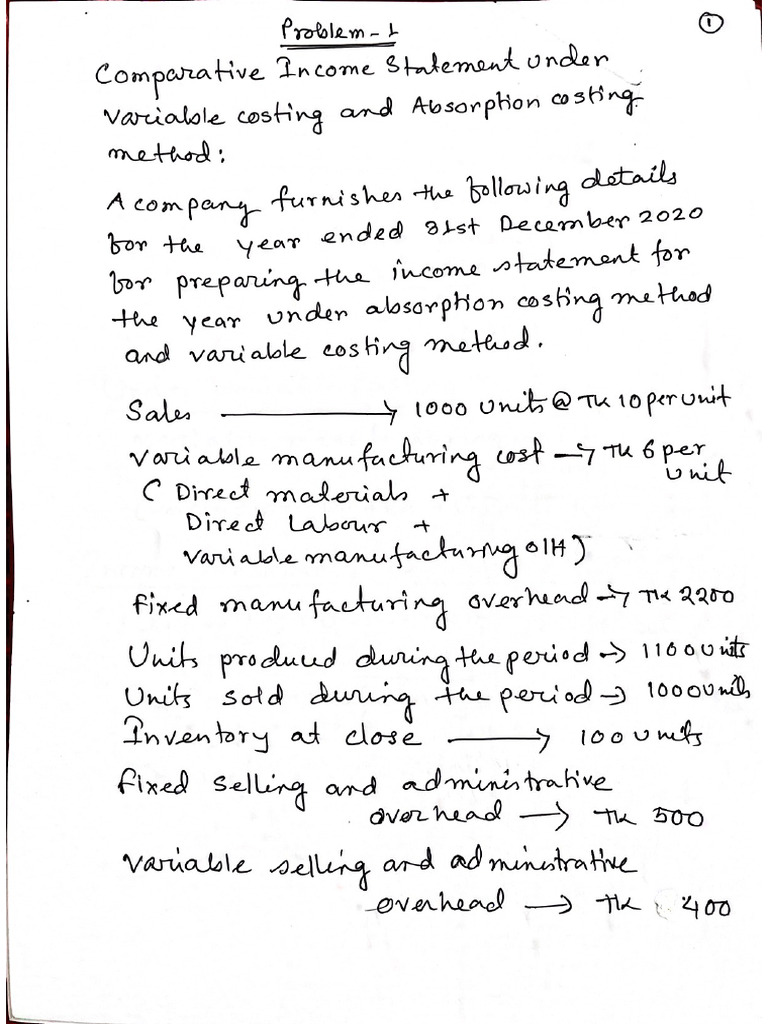 Problem-1
①
Comparative Income Statement under
variable costing and Absorption costing
method:
A company furnishes the following details
for the year ended 31st December 2020
for preparing the income statement for
the year under absorption costing method
and variable costing method.
Sales → 1000 units @ TK 10 per unit
variable manufacturing cost → TK 6 per
unit
( Direct materials +
Direct Labour +
variable manufacturing O/H)
Fixed manufacturing overhead → TK 2200
Units produced during the period → 1100 Units
Units sold during the period → 1000 Units
Inventory at close → 100 units
Fixed selling and administrative
overhead → TK 500
variable selling and administrative
overhead → TK 400